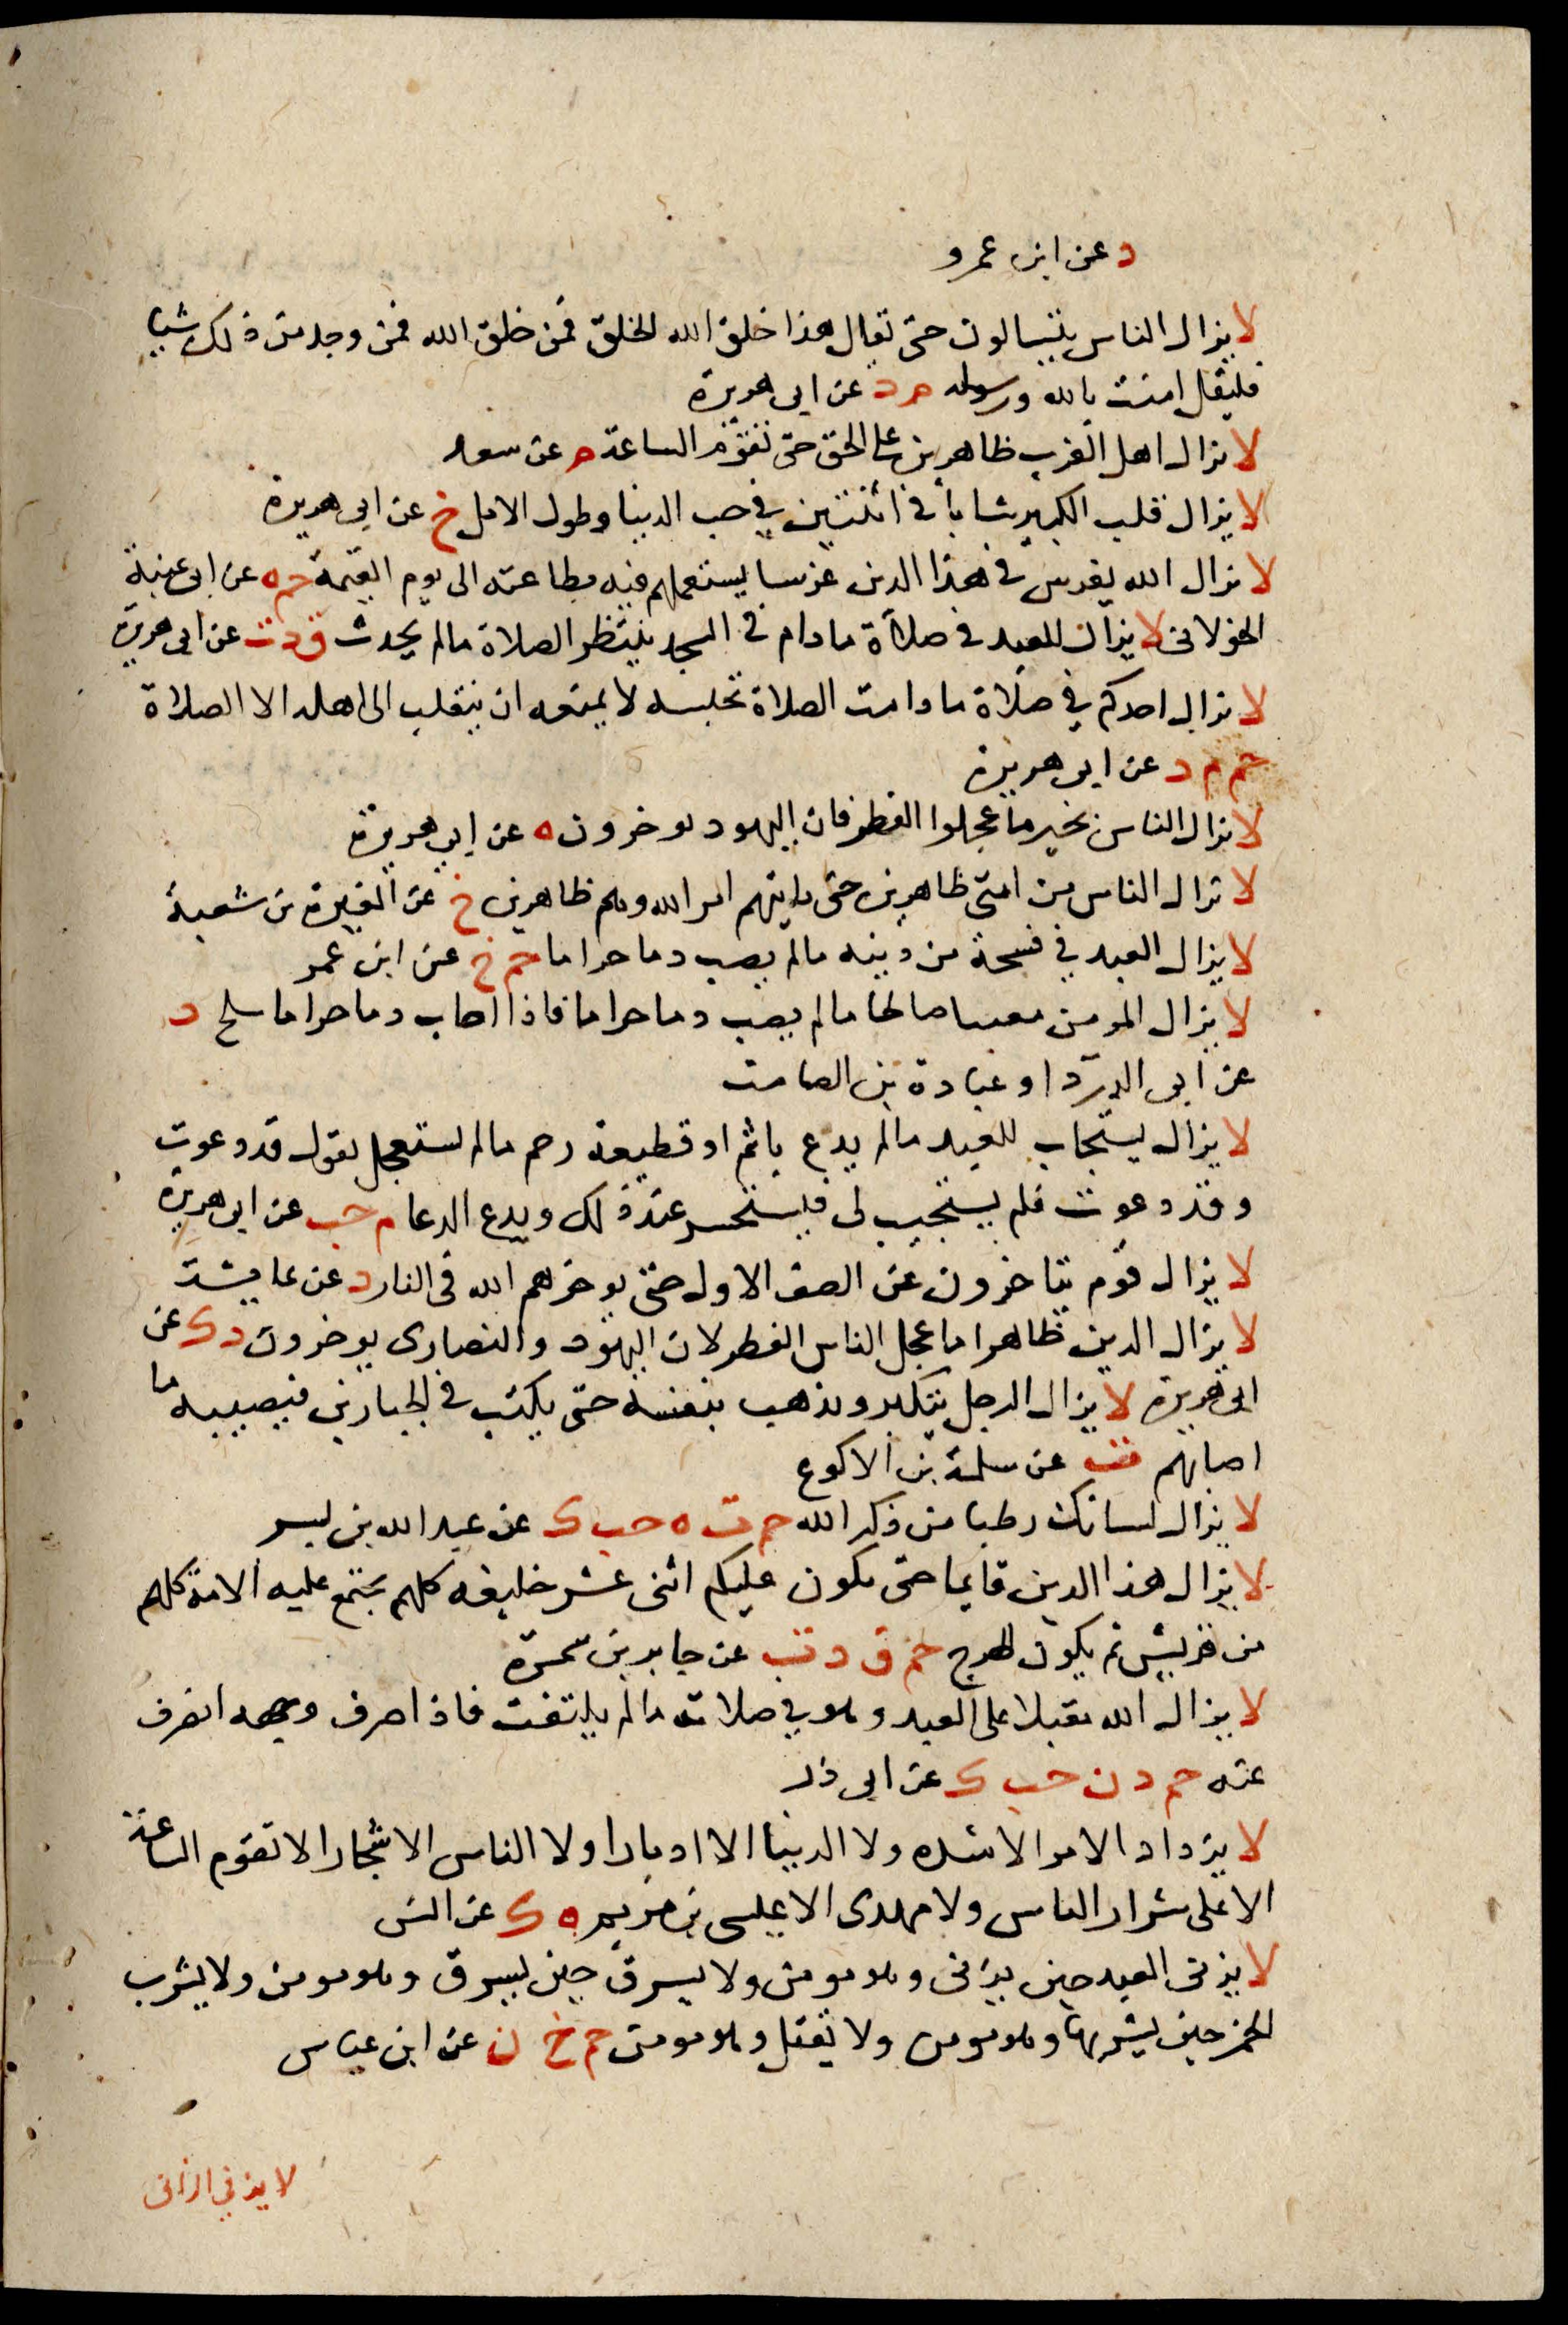 د عن ابن عمرو
لا يزال الناس يتسالون حتى يقال هذا خلق الله الخلق فمن خلق الله فمن وجد من ذلك شيا
فليقل امنت بالله ورسوله م د عن ابى هريرة
لا يزال اهل الغرب ظاهرين على الحق حتى تقوم الساعة م عن سعد
لا يزال قلب الكبير شابا فى اثنتين في حب الدنيا وطول الامل خ عن ابى هريرة
لا يزال الله يغرس فى هذا الدين غرسا يستعملهم فيه بطاعته الى يوم القيمة حم ه عن ابى عنبة
الخولانى لا يزال العبد فى صلاة ما دام فى المسجد ينتظر الصلاة مالم يحدث ق د ت عن ابى هريرة
لا يزال احدكم في صلاة ما دامت الصلاة تحبسه لا يمنعه ان ينقلب الى اهله الا الصلاة
حم م د عن ابى هريرة
لا يزال الناس بخير ما عجلوا الفطر فان اليهود يوخرون ه عن ابى هريرة
لا تزال الناس من امتى ظاهرين حتى ياتيهم امر الله وهم ظاهرين خ عن المغيرة بن شعبة
لا يزال العبد في فسحة من دينه مالم يصب دما حراما حم خ عن ابن عمر
لا يزال المومن معنقا صالحا مالم يصب دما حراما فاذا اصاب دما حراما بلح د
عن ابى الدردا وعبادة بن الصامت
لا يزال يستجاب للعبد مالم يدع باثم او قطيعة رحم مالم يستعجل يقول قد دعوت
وقد دعوت فلم يستجيب لى فيستحسر عند ذلك ويدع الدعا م حب عن ابى هريرة
لا يزال قوم يتاخرون عن الصف الاول حتى يوخرهم الله فى النار د عن عايشة
لا يزال الدين ظاهرا ما عجل الناس الفطر لان اليهود والنصارى يوخرون د ك عن
ابى هريرة لا يزال الرجل يتكبر ويذهب بنفسه حتى يكتب فى الجبارين فيصيبه ما
اصابهم ت عن سلمة بن الاكوع
لا يزال لسانك رطبا من ذكر الله حم ت ه حب ك عن عبد الله بن بسر
لا يزال هذا الدين قايما حتى يكون عليكم اثنى عشر خليفه كلهم يجتمع عليه الامة كلهم
من قريش ثم يكون الهرج حم ق د ت عن جابر بن سمرة
لا يزال الله مقبلا على العبد وهو في صلاته مالم يلتفت فاذا صرف وجهه انصرف
عنه حم د ن حب ك عن ابى ذر
لا يزداد الامر الا شده ولا الدنيا الا ادبارا ولا الناس الا شحا ولا تقوم الساعة
الا على شرار الناس ولا مهدى الا عيسى بن مريم ه ك عن انس
لا يزنى العبد حين يزنى وهو مومن ولا يسرق حين يسرق وهو مومن ولا يشرب
الخمر حين يشربها وهو مومن ولا يقتل وهو مومن حم خ ن عن ابن عباس
لا يزني الزانى